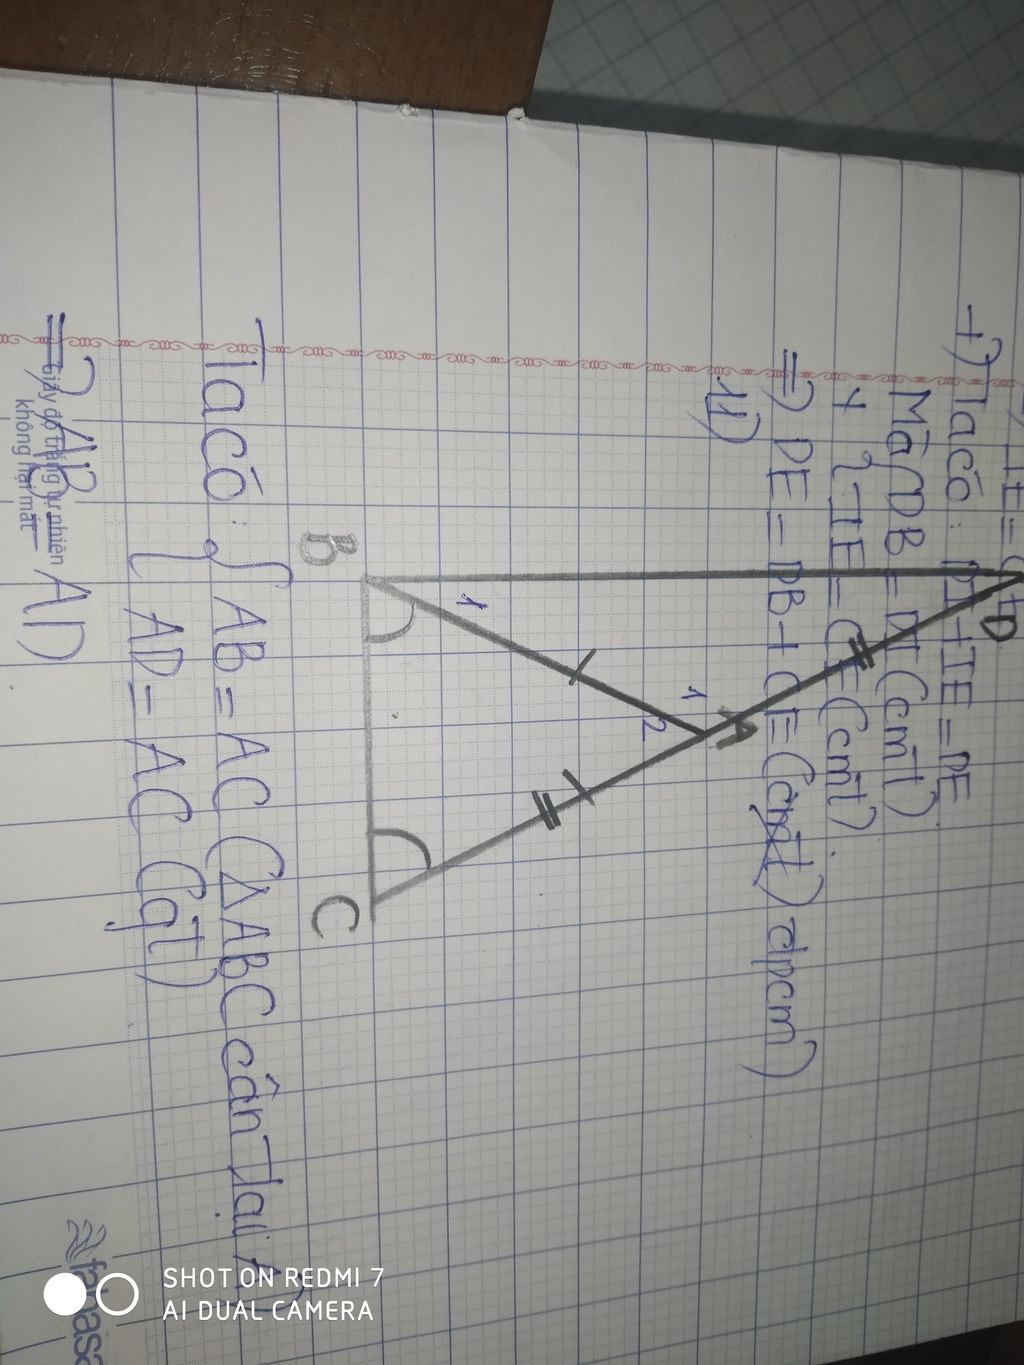 IE=
+) Ta có: DI+IE=DE
Mà { DB=DI (cmt)
{ IE=CE (cmt)
=) DE=DB+CE (cmt) đpcm)
11)
D
A
1
2
1
B
C
Ta có: { AB=AC (ΔABC cân Tại A)
{ AD=AC (gt)
=) AB=AD
Giấy độ trắng tự nhiên
không hại mắt
SHOT ON REDMI 7
AI DUAL CAMERA